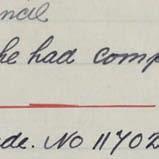 he had comp
de. No 11702